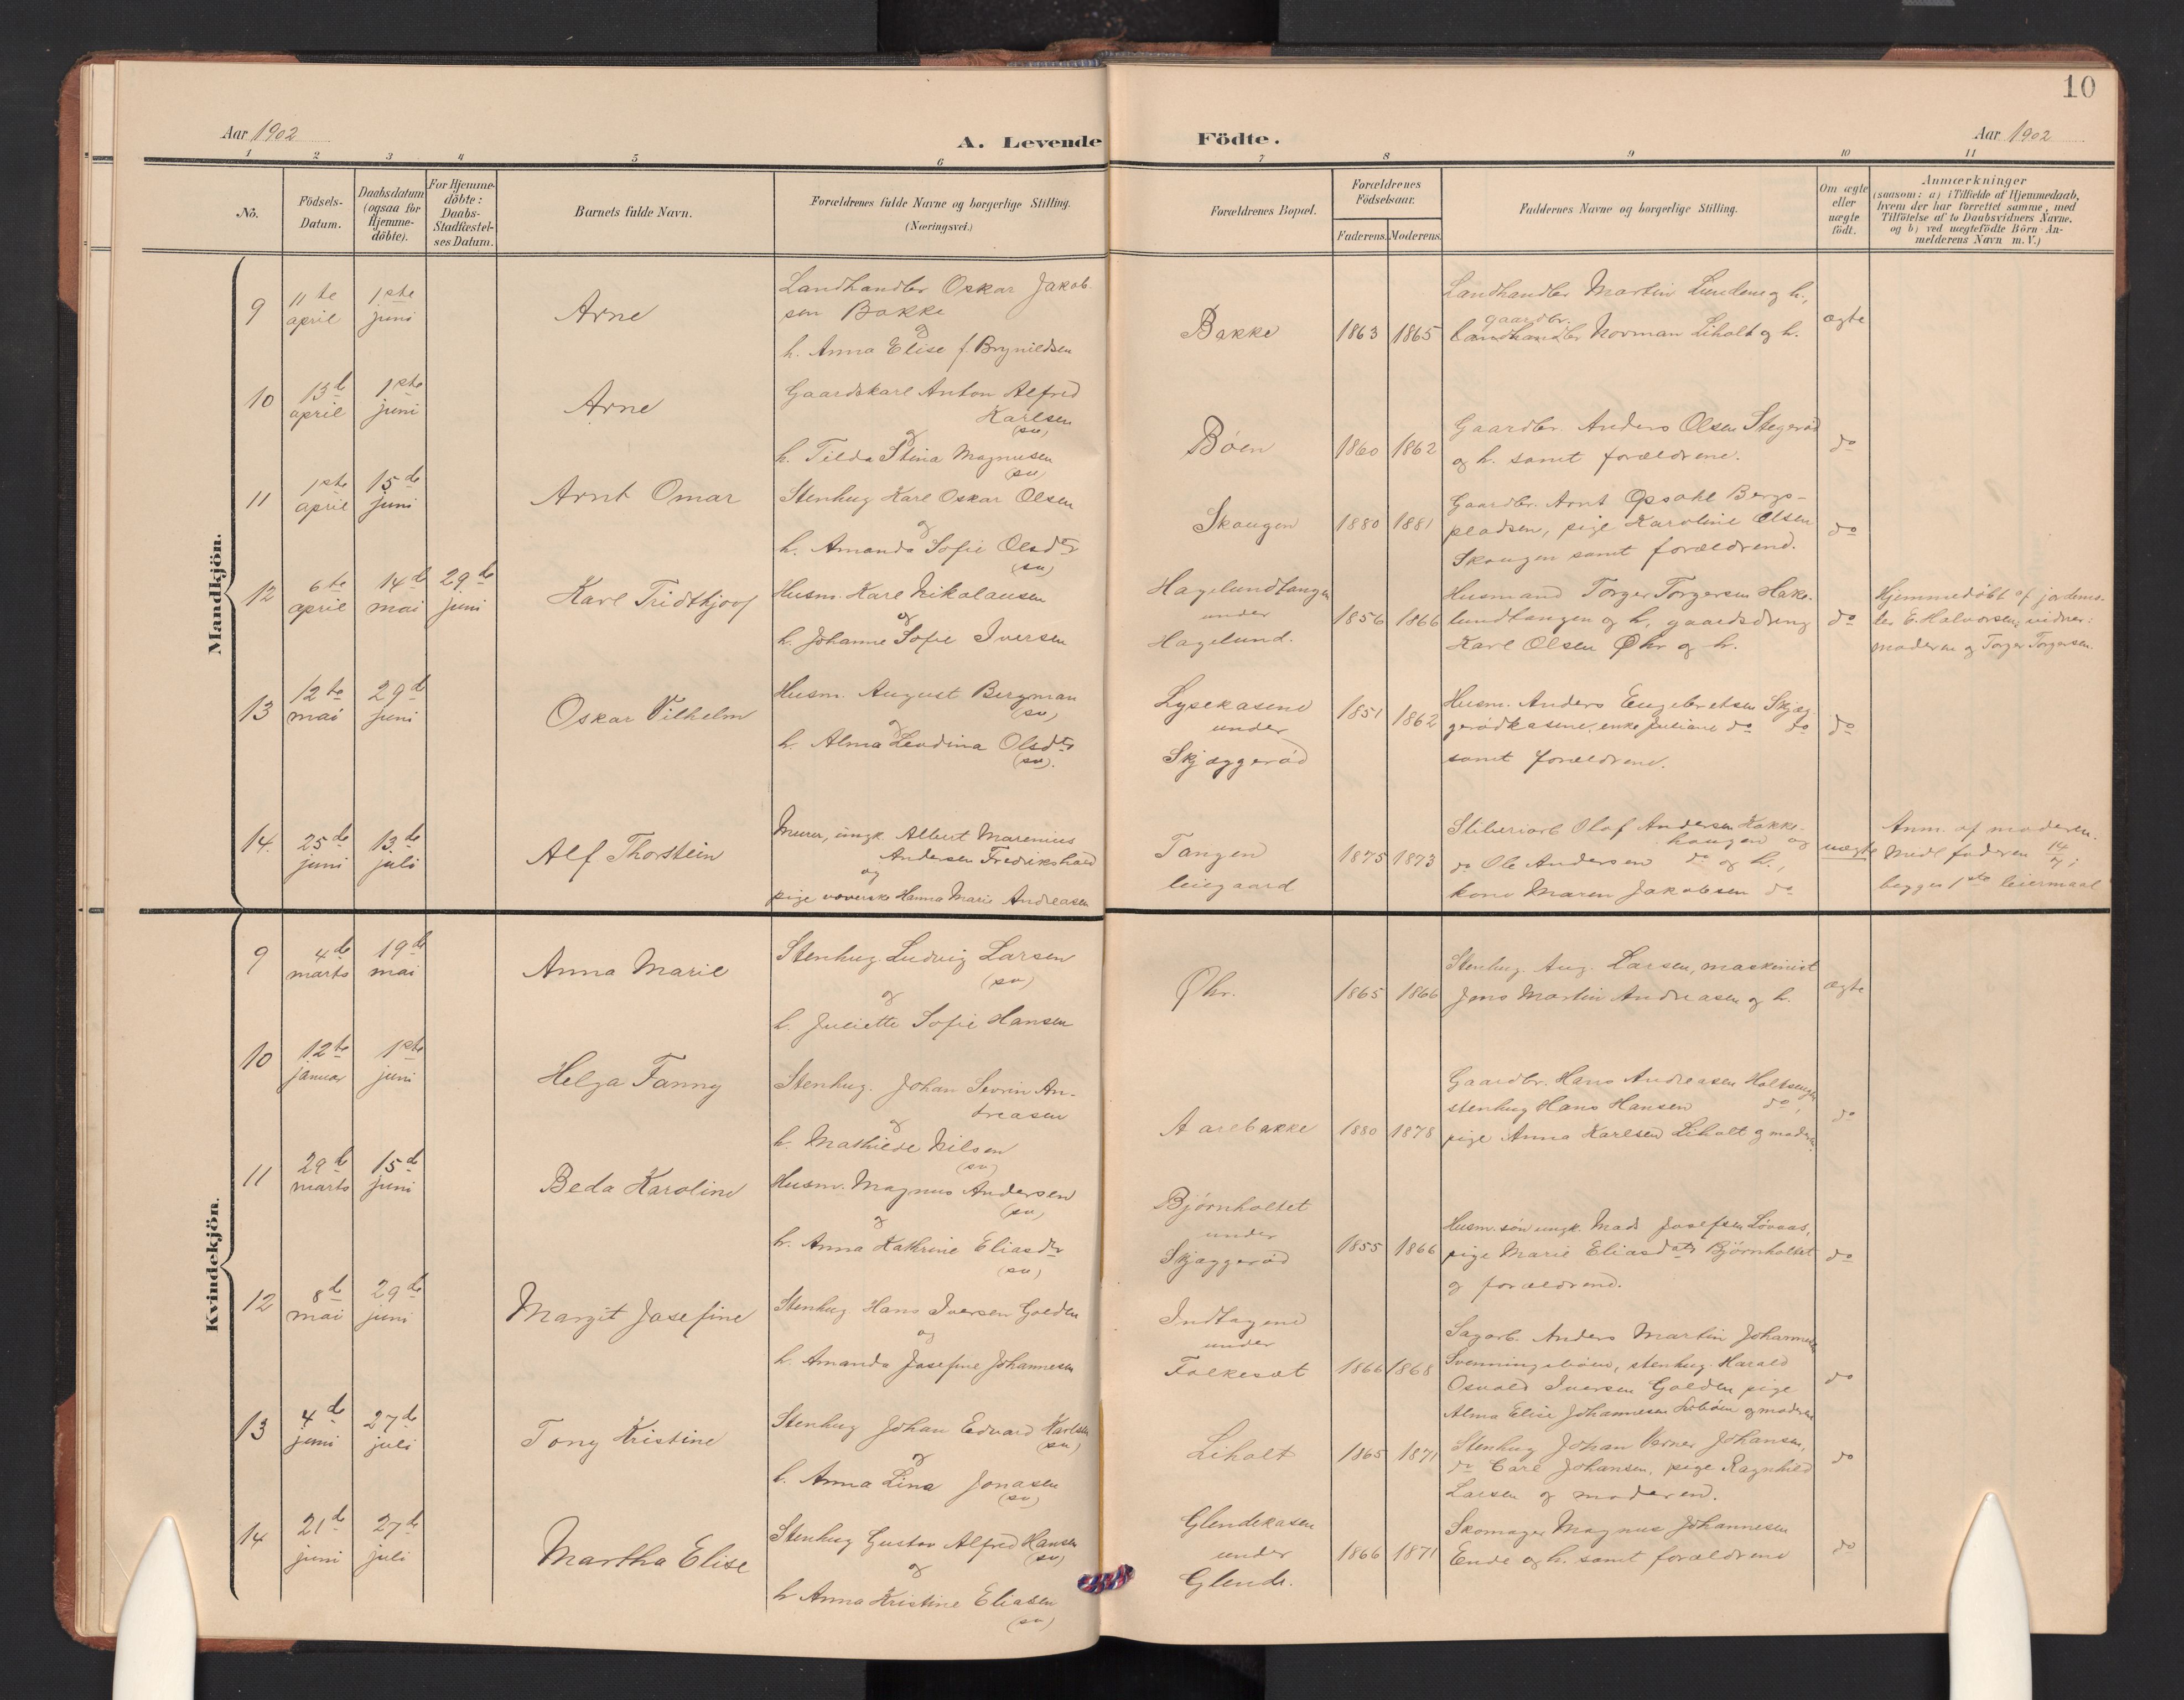 10
Aar 1902
A. Levende Födte.
Aar 1902
1 2 3 4 5 6 7 8 9 10 11
No.
Födsels-Datum.
Daabsdatum (ogsaa for Hjemme-döbte).
For Hjemme-döbte: Daabs-Stadfæstel-ses Datum.
Barnets fulde Navn.
Forældrenes fulde Navne og borgerlige Stilling. (Næringsvei.)
Forældrenes Bopæl.
Forældrenes Födselsaar.
Faderens. Moderens.
Faddernes Navne og borgerlige Stilling.
Om ægte eller uægte födt.
Anmærkninger
(saasom: a) i Tilfælde af Hjemmedaab,
hvem der har forrettet samme, med
Tilföielse af to Daabsvidners Navne.
og b) ved uægtefödte Börn An-
melderens Navn m. V.)
Mandkjön.
9
11te april
1ste juni
Arne
Landhandler Oskar Jakob-
sen Bakke
og
h. Anna Elise f. Brynildsen
Bakke
1863 1865
Landhandler Martin Lunden og h.,
gaardbr.
Landhandler Norman Liholt og h.
ægte
10
13de april
1ste juni
Arne
Gaardskarl Anton Alfred
Karlsen
(sv)
og
h. Tilda Stina Magnusen
(sv)
Böen
1860 1862
Gaardbr. Anders Olsen Stegeröd
og h. samt forældrene.
do
11
1ste april
15de juni
Arnt Omar
Stenhug Karl Oskar Olsen
og
h. Amanda Sofie Olsdtr
(sv)
Skaugen
1880 1881
Gaardbr. Arnt Opsahl Bergs-
pladsen, pige Karoline Olsen
Skaugen samt forældrene.
do
12
6te april
14de mai
29de juni
Karl Fridthjoof
Husm. Karl Nikolausen
og
h. Johanne Sofie Iversen
Hagelundtangen
under
Hagelund.
1856 1866
Husmand Torger Torgersen Hake-
lundtangen og h, gaardsdreng
Karl Olsen Øhr og h.
do
Hjemmedöbt af jordemo-
der E. Halvorsen, vidner:
moderen og Torger Torgersen.
13
12te mai
29de juni
Oskar Vilhelm
Husm. August Bergman
(sv)
og
h. Alma Leudina Olsdtr
(sv).
Lysekasene
under
Skjæggeröd
1851 1862
Husm. Anders Engebretsen Skjæg-
gerödkasene, enke Juliane do do
samt forældrene.
do
14.
25de juni
13de juli
Alf Thorstein
Murer, ungk. Albert Marenius
Andersen Fredrikshald
og
pige væverske Hanna Marie Andreasen
Tangen
leiegaard
1875 1873
Sliberiarb Olaf Andersen Kakke-
haugen og
do Ole Andersen do og h.,
kone Maren Jakobsen do
uægte
Anm. af moderen.
Medl faderen 14/7;
begges 1ste leiermaal
Kvindekjön.
9
4de marts
19de mai
Anna Marie
Stenhug Ludvig Larsen
(sv)
og
h. Juliette Sofie Hansen
Øhr.
1865 1866
Stenhug. Aug. Larsen, maskinist
Jens Martin Andreasen og h.
ægte
10
12te januar
1ste juni
Helga Fanny
Stenhug. Johan Sevrin An-
dreasen
og
h. Mathilde Nilsen
(sv)
Aarebakke
1880 1878
Gaardbr. Hans Andreasen Holtsengen
stenhug Hans Hansen do,
pige Anna Karlsen Liholt og moderen
do
11
29de marts
15de juni
Beda Karoline
Husm. Magnus Andersen
(sv)
og
h. Anna Kathrine Eliasdtr
(sv)
Björnholtet
under
Skjæggeröd
1855 1866
Husm. sön ungk. Mads Josefsen Lövaas,
pige Marie Eliasdatr Björnholtet
og forældrene.
do
12
8de mai
29de juni
Margit Josefine
Stenhug Hans Iversen Golden
og
h. Amanda Josefine Johannesen
Indtagene
under
Folkesæt
1866 1868
Sagarb. Anders Martin Johannesen
Svenningsböen, stenhug. Harald
Osvald Iversen Golden pige
Alma Elise Johannesen og moderen
do
13
4de juni
27de juli
Tony Kristine
Stenhug Johan Edvard Karlsen
(sv)
og
h. Anna Lina Jonasen
(sv)
Liholt
1865 1871
Stenhug Johan Verner Johansen,
do Carl Johansen, pige Ragnhild
Larsen og moderen.
do
14
21de juni
27de juli
Martha Elise
Stenhug Gustav Alfred Hansen
(sv)
og
h Anna Kristine Eliasen
(sv)
Glendekasen
under
Glende.
1866 1871
Skomager Magnus Johannesen
Ende og h. samt forældrene
do